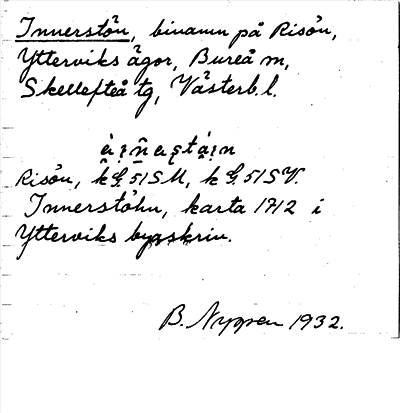 Innerstön, binamn på Risön,
Ytterviks ägor, Bureå m,
Skellefteå tg, Västerb. l.
Risön, k G. 51 SM, k G. 51 SV.
Innerstöhn, karta 1712 i
Ytterviks byaskrin.
B. Nyppen 1932.